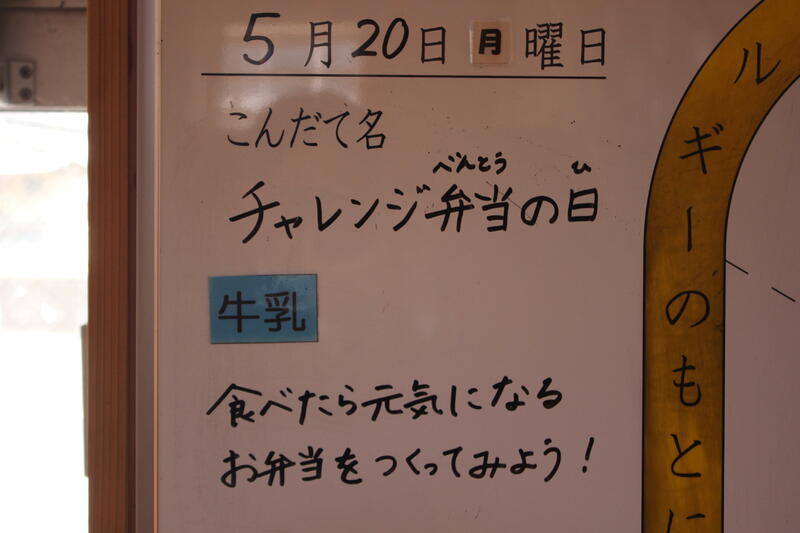 5月20日 月 曜日
こんだて名
べんとう ひ
チャレンジ弁当の日
牛乳
食べたら元気になる
お弁当をつくってみよう!
ルギーのもとに